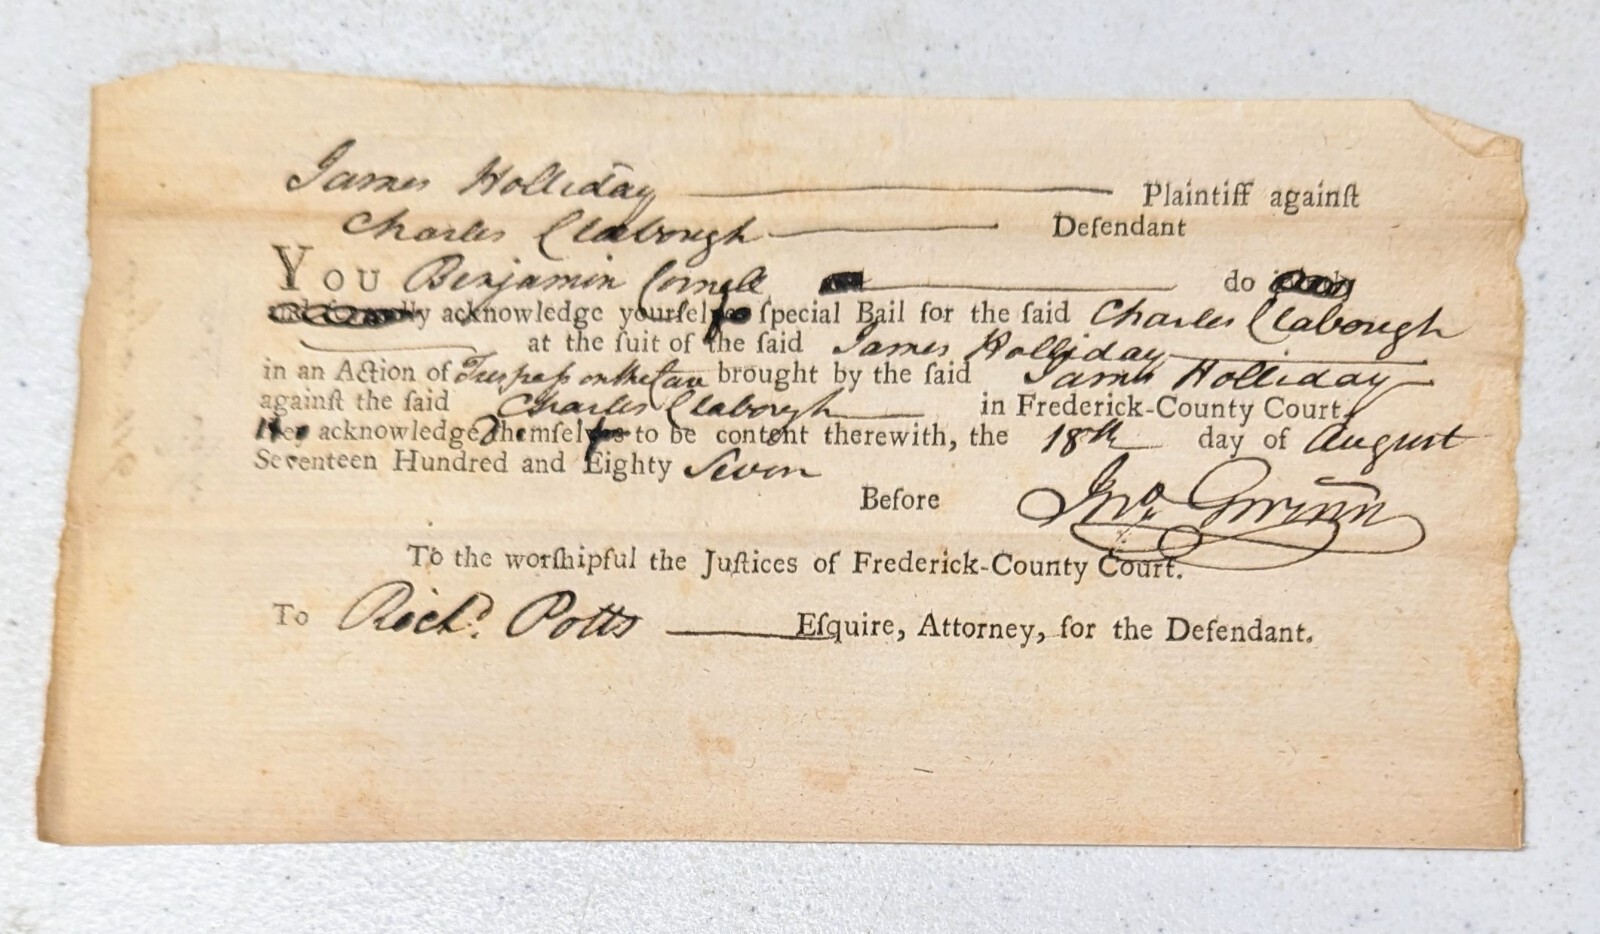 James Holliday Plaintiff against
Charles Clabough Defendant
YOU Benjamin Cornell do
acknowledge yourſel ſpecial Bail for the ſaid Charles Clabough
at the ſuit of the ſaid James Holliday
in an Action of Treſpaſs on the Caſe brought by the ſaid James Holliday
againſt the ſaid Charles Clabough in Frederick-County Court,
He acknowledge to be content therewith, the 18th day of August
Seventeen Hundred and Eighty Seven
Before Jno. Gwinn
To the worſhipful the Juſtices of Frederick-County Court.
To Richd. Potts Eſquire, Attorney, for the Defendant.